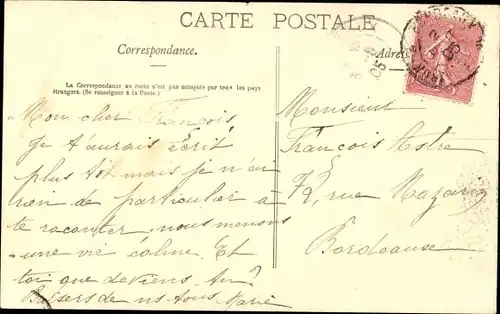 CARTE POSTALE
Correspondance.
Adres
La Correspondance au recto n'est pas acceptée par tous les pays
étrangers. (Se renseigner à la Poste.)
Mon cher François
Je t'aurais écrit
plus tôt mais je n'ai
rien de particulier à
te raconter, nous menons
une vie calme. Et
toi que deviens-tu?
Baisers de ns tous Marie
Monsieur
François Astre
72, rue Mazarin
Bordeaux
05